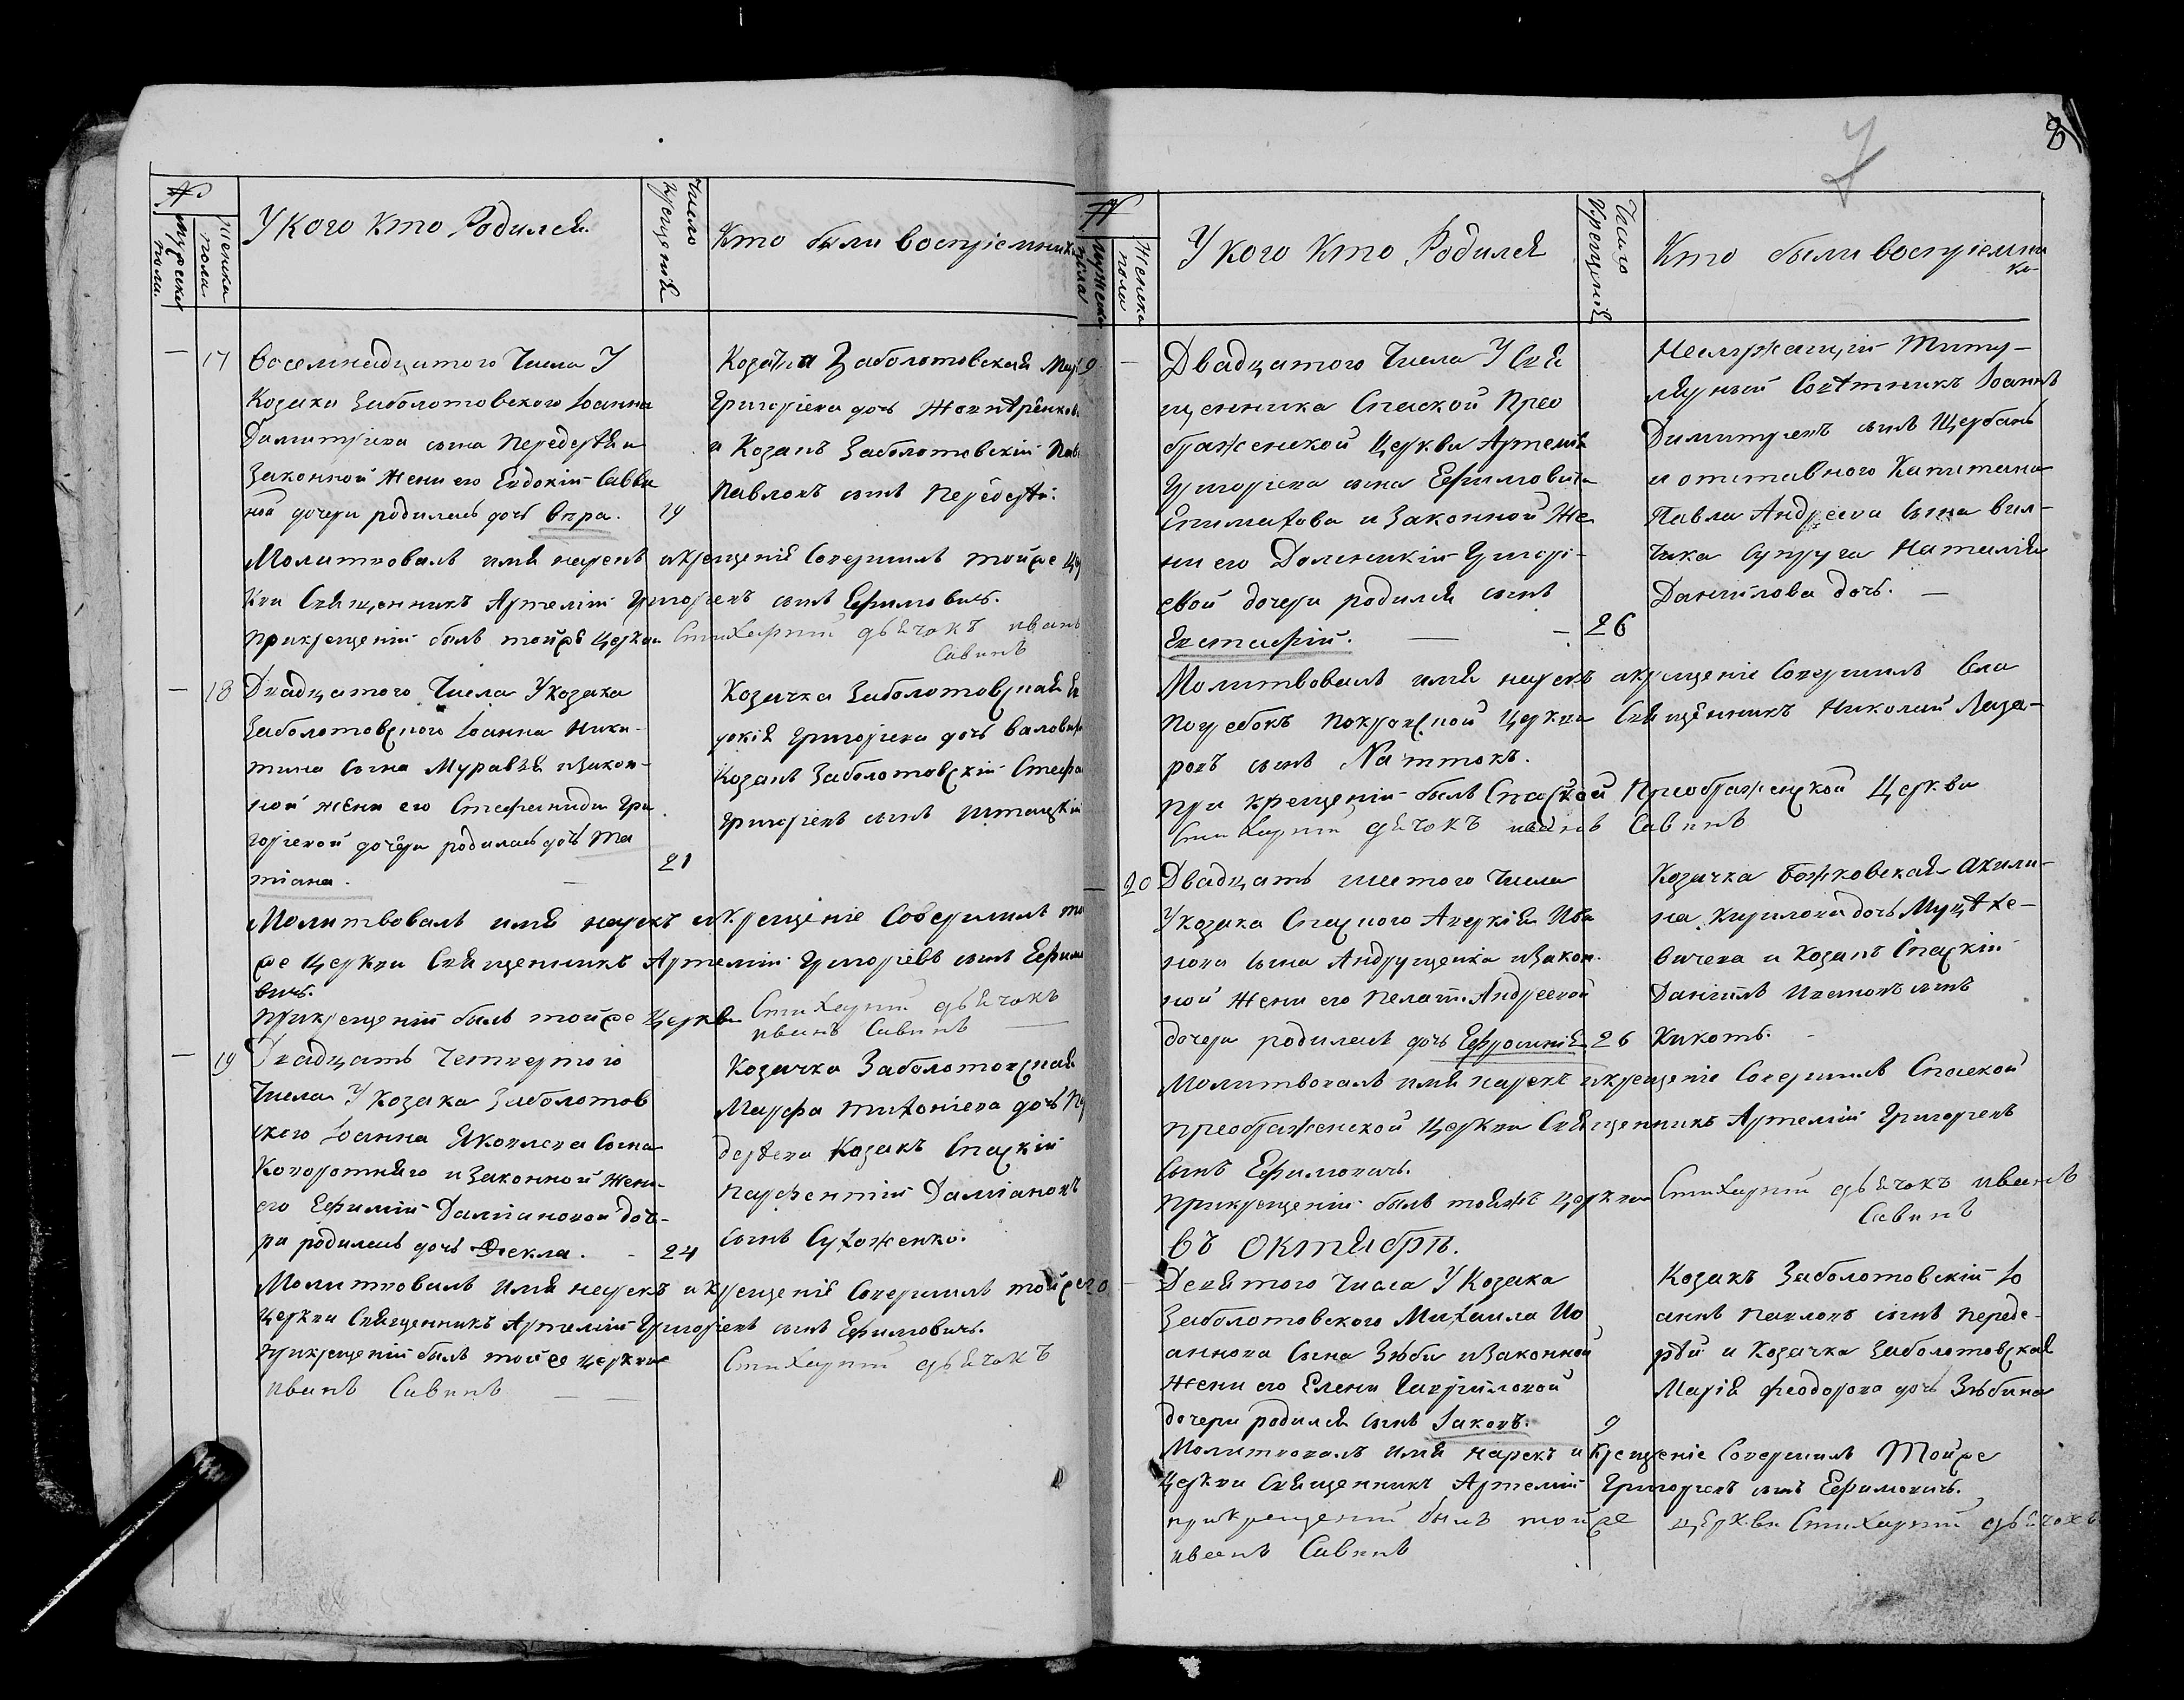 №
мужеска пола.
женска пола.
У кого кто Родился.
Число крещенія
Кто были воспріемники
17
Восемнадцатого Числа У
Козака Заболотовского Іоанна
Димитріева сына Передерѣя и
Законной жени его Евдокіи Савви
ной дочери родилась дочь Вѣра. 19
Козачка Заболотовская
Григоріева дочь
и Козакъ Заболотовскій
Павловъ сынъ Передерѣй.
Молитвовалъ имя нарекъ и крещенія Совершилъ тойже Цер
кви Священникъ Артемій Григоріевъ сынъ Ефимовичъ.
прикрещеніи былъ тойже Церкви Стихарній дьячокъ иванъ
Савинъ
18
Двадцатого Числа У козака
Заболотовского Іоанна Ники-
тина сына Муравья и Закон-
ной жени его Стефаниди Гри
горіевой дочери родилась дочь Та
тіана. 21
Козачка Заболотовская Ев
докія Григоріева дочь
Козакъ Заболотовскій Стефа
Григоріевъ сынъ
Молитвовалъ имя нарекъ и крещеніе Совершилъ той
же Церкви Священникъ Артемій Григоріевъ сынъ Ефимо
вичъ.
прикрещеніи былъ тойже Церкви Стихарній дьячокъ
иванъ Савинъ
19
Двадцать Четвертого
Числа У Козака Заболотов
ского Іоанна Яковлева Сына
Коворотнего и Законной жени
его Ефиміи Даміановой доче-
ри родилась дочь Фекла. 24
Козачка Заболотовская
Марфа Тихоніева дочь Пе
дерѣева Козакъ Спаскій
Парфентій Даміановъ
сынъ Сухоженко.
Молитвовалъ Имя нарекъ и крещенія Совершилъ тойже
Церкви Священникъ Артемій Григоріевъ сынъ Ефимовичъ.
прикрещеніи былъ тойже церкви Стихарній дьячокъ
иванъ Савинъ
7
8
№
мужеска пола
Женска пола
У кого Кто Родился
Число Крещенія
Кто были воспріемни
ки
9
Двадцатого Числа У Свя
щенника Спаской Прео
браженской Церкви Артемія
Григоріева сына Ефимовича
Епимахова и Законной Же
ни его Домникіи Григорі-
евой дочери родился сынъ
Евстафій. 26
Неслужащій Титу-
лярный Совѣтникъ Іоаннъ
Димитріевъ сынъ Щербань
и отставного Капитана
Павла Андреева Сына Вил-
чика Супруга Наталія
Данилова дочь.
Молитвовалъ имя нарекъ икрещеніе Совершилъ Сла
погребокъ Покровской Церкви Священникъ Николай Лаза-
ревъ сынъ
при крещеніи былъ Спаской Преображенской Церкви
Стихарній дьячокъ иванъ Савинъ
20
Двадцать шестого Числа
У козака Спаского Аверкія Ива
нова Сына Андрущенка и Закон-
ной жени его Пелагіи Андреевой
дочери родилась дочь Ефросинія. 26
Козачка Божковская Акили-
на Кирилова дочь
вичева и Козакъ Спаскій
Даніилъ Ивановъ сынъ
Кикоть.
Молитвовалъ имя нарекъ икрещеніе Совершилъ Спаской
Преображенской Церкви Священникъ Артемій Григоріевъ
Сынъ Ефимовичъ.
прикрещеніи былъ тойжъ церкви Стихарній дьячокъ иванъ
Савинъ
Въ Октябрѣ.
10
Девятого Числа У Козака
Заболотовского Михаила Іо
аннова Сына Зюби и Законной
Жени его Елени Гавриловой
дочери родился сынъ Іаковъ. 9
Козакъ Заболотовскій Іо
аннъ Павловъ сынъ Переде-
рѣй и Козачка Заболотовская
Марія Феодорова дочь Зюбина
Молитвовалъ имя нарекъ и Крещеніе Совершилъ Тойже
Церкви Священникъ Артемій Григоріевъ сынъ Ефимовичъ.
прикрещеніи былъ тойже церкви Стихарній дьячокъ
иванъ Савинъ